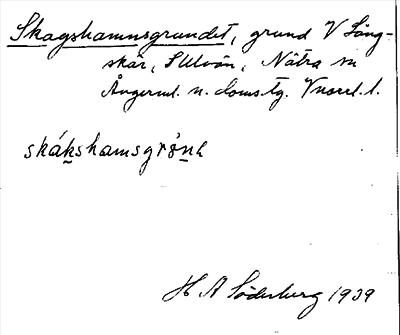 Skagshamnsgrundet, grund V Lång-
skär, S Ulvön, Nätra sn
Ångerml. n. doms.tg. Vnorrl. l.
skákshamsgrònt
H A Söderburg 1939